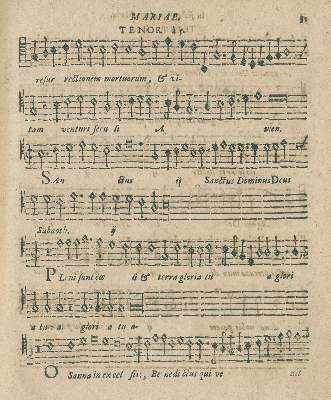 MARIAE.
TENOR
resur rectionem mortuorum, & vi-
tam venturi secu li A men.
SAn ctus ij Sanctus Dominus Deus
Sabaoth. ij
PLeni sunt cœ li & terra gloria tu a glori
a tu a. glori a tu a.
OSanna in excel sis:, Be nedi ctus qui ve nit